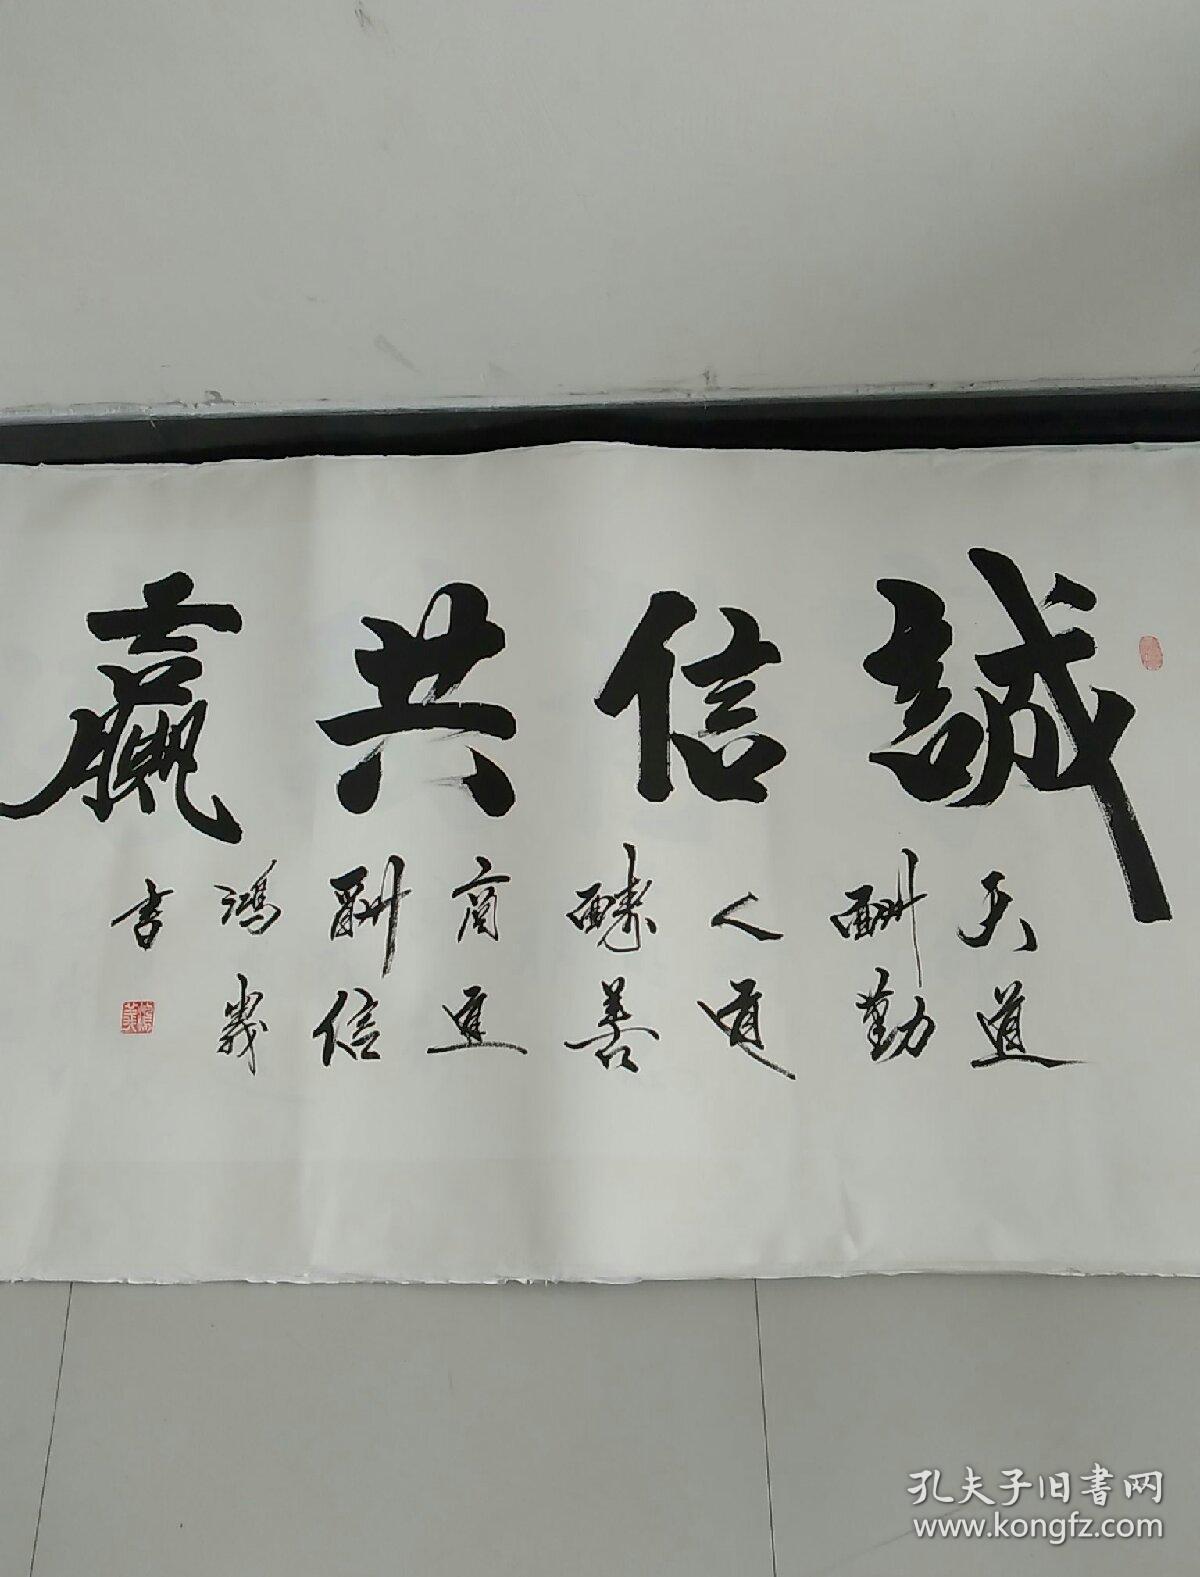 誠信共贏
天道
酬勤
人道
酬善
商道
酬信
鴻義
書
孔夫子旧书网
www.kongfz.com